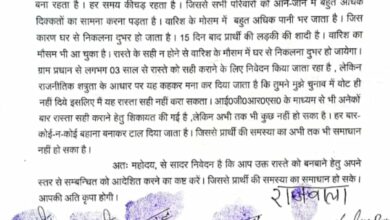 बना रहता है। हर समय कीचड़ रहता है। जिससे सभी परिवारों को आने-जाने में बहुत अधिक
दिक्कतों का सामना करना पड़ता है। वारिश के मोसाम में बहुत अधिक पानी भर जाता है। जिस
कारण घर से निकलना दुभर हो जाता है। 15 दिन बाद प्रार्थी की लड़की की शादी है। वारिश का
मौसम भी आ चुका है। रास्ते के सही न होने से वारिश के मौसम में घर से निकलना दुभर हो जायेगा।
ग्राम प्रधान से लगभग 03 साल से रास्ते को सही कराने के लिए निवेदन किया जाता रहा है, लेकिन
राजनीतिक शत्रुता के आधार पर यह कहकर मना कर दिया जाता है कि तुमने मुझे चुनाव में वोट ही
नही दिये इसलिए में यह रास्ता सही नहीं करा सकता। आई0जी0आर0एस0 के माध्यम से भी अनेकों
बार रास्ता सही कराने हेतु शिकायत की गई है, लेकिन अभी तक भी कुछ नहीं हो सका है। हर बार-
कोई-न-कोई बहाना बनाकर टाल दिया जाता है। जिससे प्रार्थी की समस्या का अभी तक भी समाधान
नहीं हो सका है।
अतः महोदय, से सादर निवेदन है कि आप उक्त रास्ते को बनबाने हेतु अपने
स्तर से सम्बन्धित को आदेशित करने का कष्ट करें। जिससे प्रार्थी की समस्या का समाधान हो सके।
आपकी अति कृपा होगी।
राजबाला